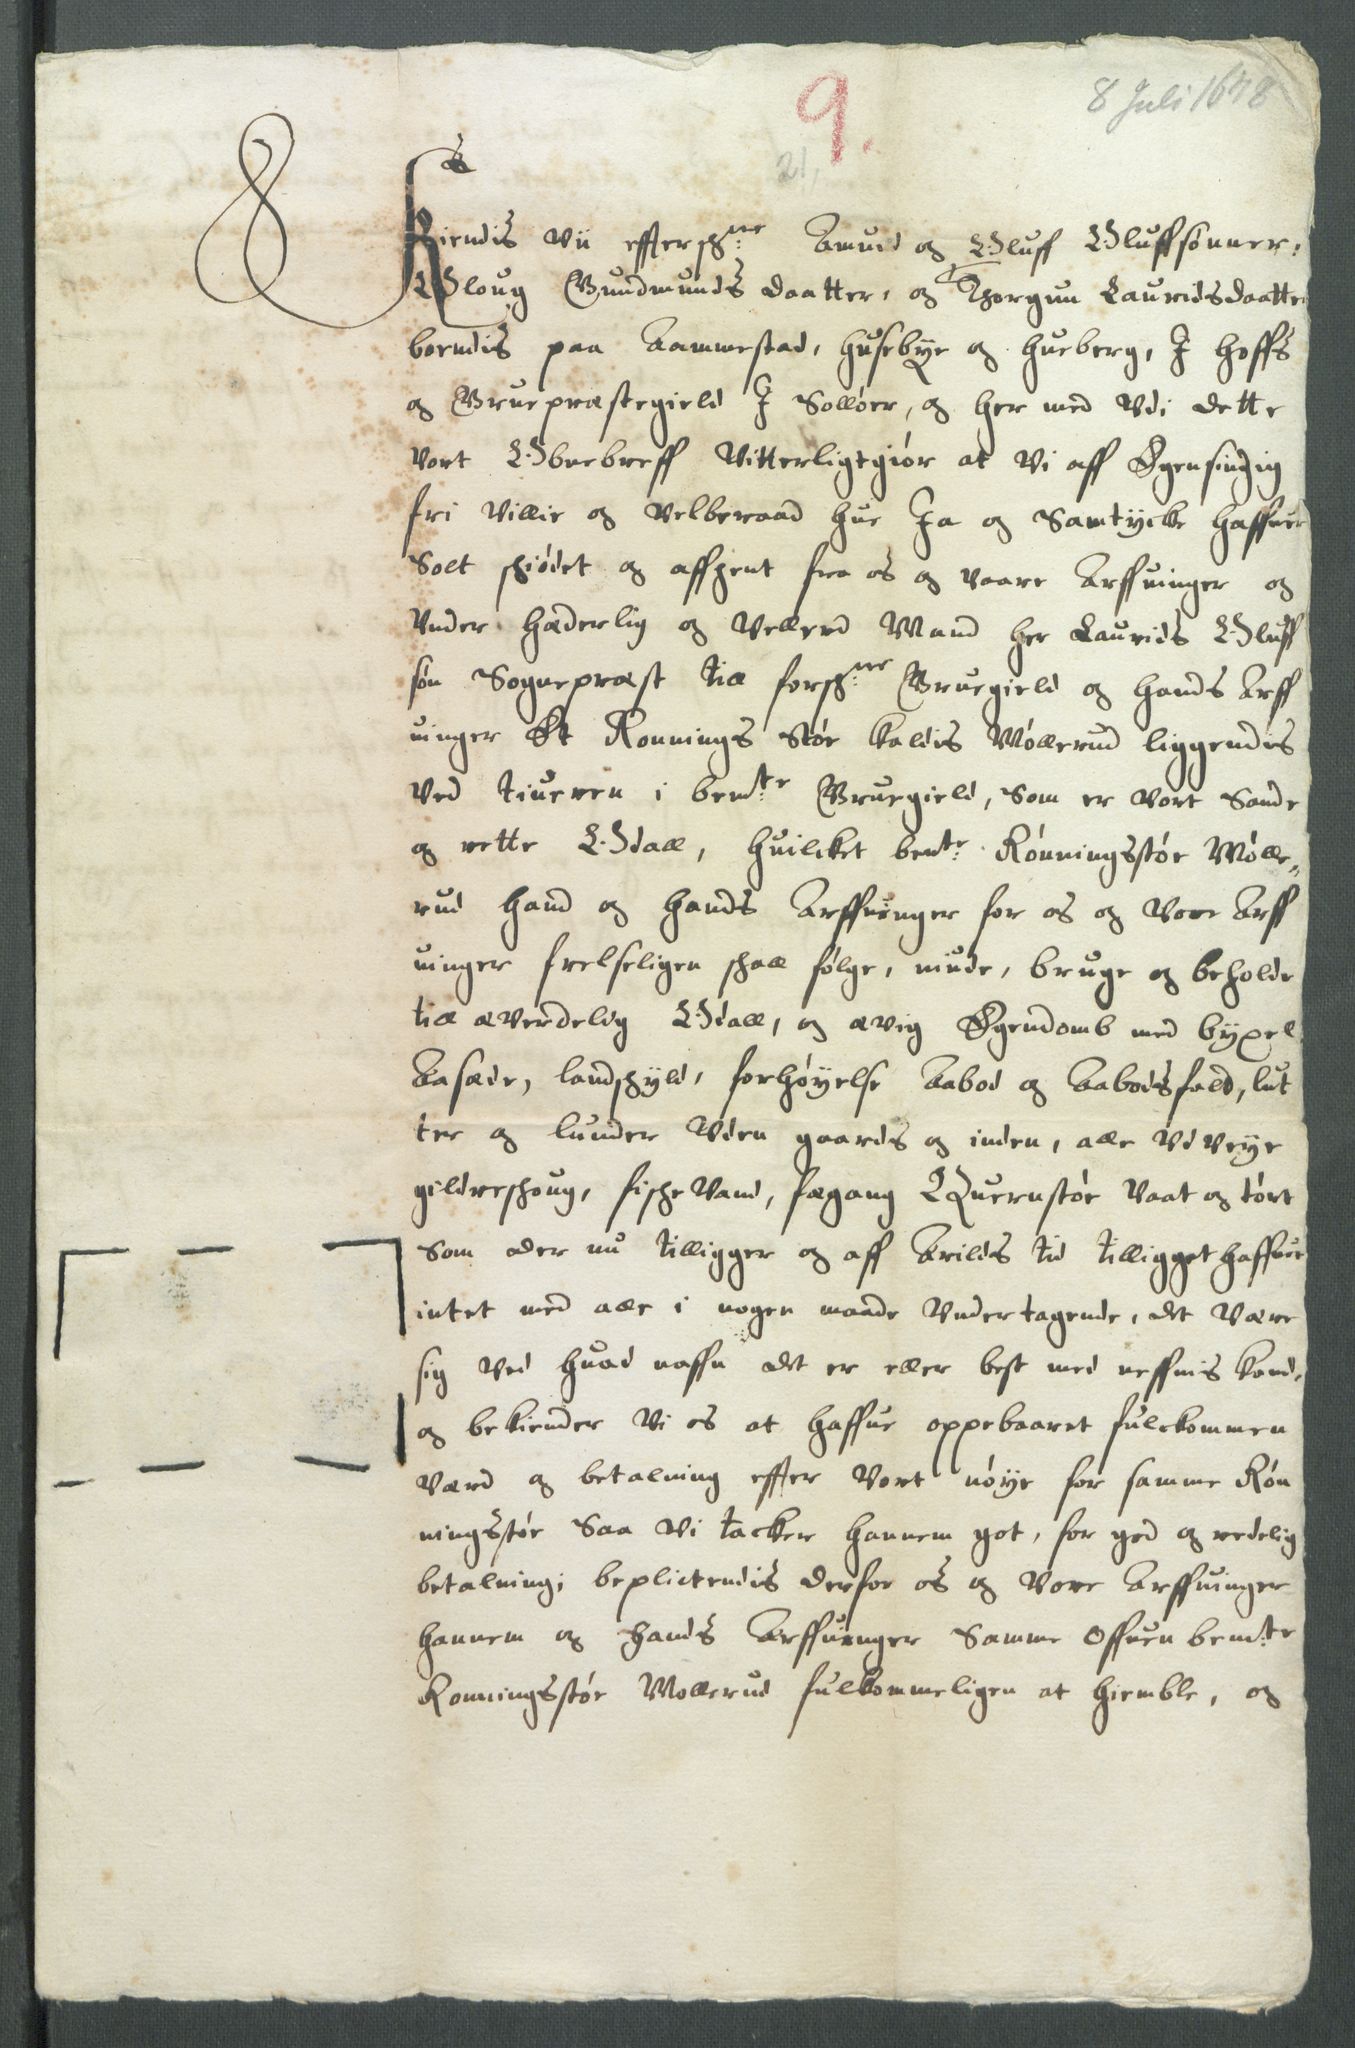 8 Juli 1648
9.
21,
Kiendis vii effterschne Amund og Oluff Oluffsönner,
Oloug Gundmunds daatter, og Thorgun Lauridsdaatter
boendis paa Aamestad, Husebÿe og Hueberg, I Hoffs
og Gruepræstegield I Sollöer, og her med Vdi dette
vort Obnebreff Vitterligtgiör at Vi aff Egensindig
fri Villie og Velberaad hue Ja og Samtÿcke haffuer
Solt schiödet og affhent fra os og vaare Arffuinger og
Vnder hæderlig og Vellerd Mand her Laurids Oluff
sön Sognepræst till forschne Gruegield og hands Arff
uinger Et Ronnings stöe kaldis Möllerud liggendis
Ved tiueren i bemte Gruegield, Som er Vort Sande
og rette Odall, huilcket bemte Rönningsstöe Mölle„
rud hand og hands Arffuinger for os og Vore Arff
uinger frelseligen schall fölge, niude, bruge og beholde
till æverdelig Odall, og ævig Egendomb med bÿxel
Aasæde, landschÿld, forhöÿelse Aabod og Aabodsfald, lut
ter og lunder Uden gaards og inden, alle Vdveÿe
gildreschoug, fische Vand, fægang Quernstöe Vaat og tört
Som der nu tilligger og aff Arilds tid tilligget haffuer
intet med alle i nogen maade Vndertagende, det Være
sig Ved huad naffn det er eller best med neffnis kand,
og bekiender Vi os at haffue oppebaaret fulckommen
Værd og betalning effter Vort nöÿe for samme Rön
ningsstöe Saa Vi tacker hannem got, for god og redelig
betalning, beplictendis derfor os og Vore Arffuinger
hannem og hands Arffuinger Samme offuenbemte
Ronningsstöe Mollerud fulkommeligen at hiemble, og